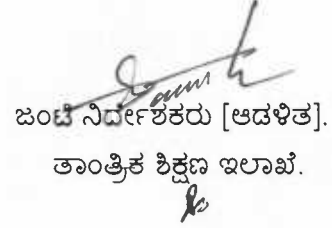 ಜಂಟಿ ನಿರ್ದೇಶಕರು [ಆಡಳಿತ].
ತಾಂತ್ರಿಕ ಶಿಕ್ಷಣ ಇಲಾಖೆ.